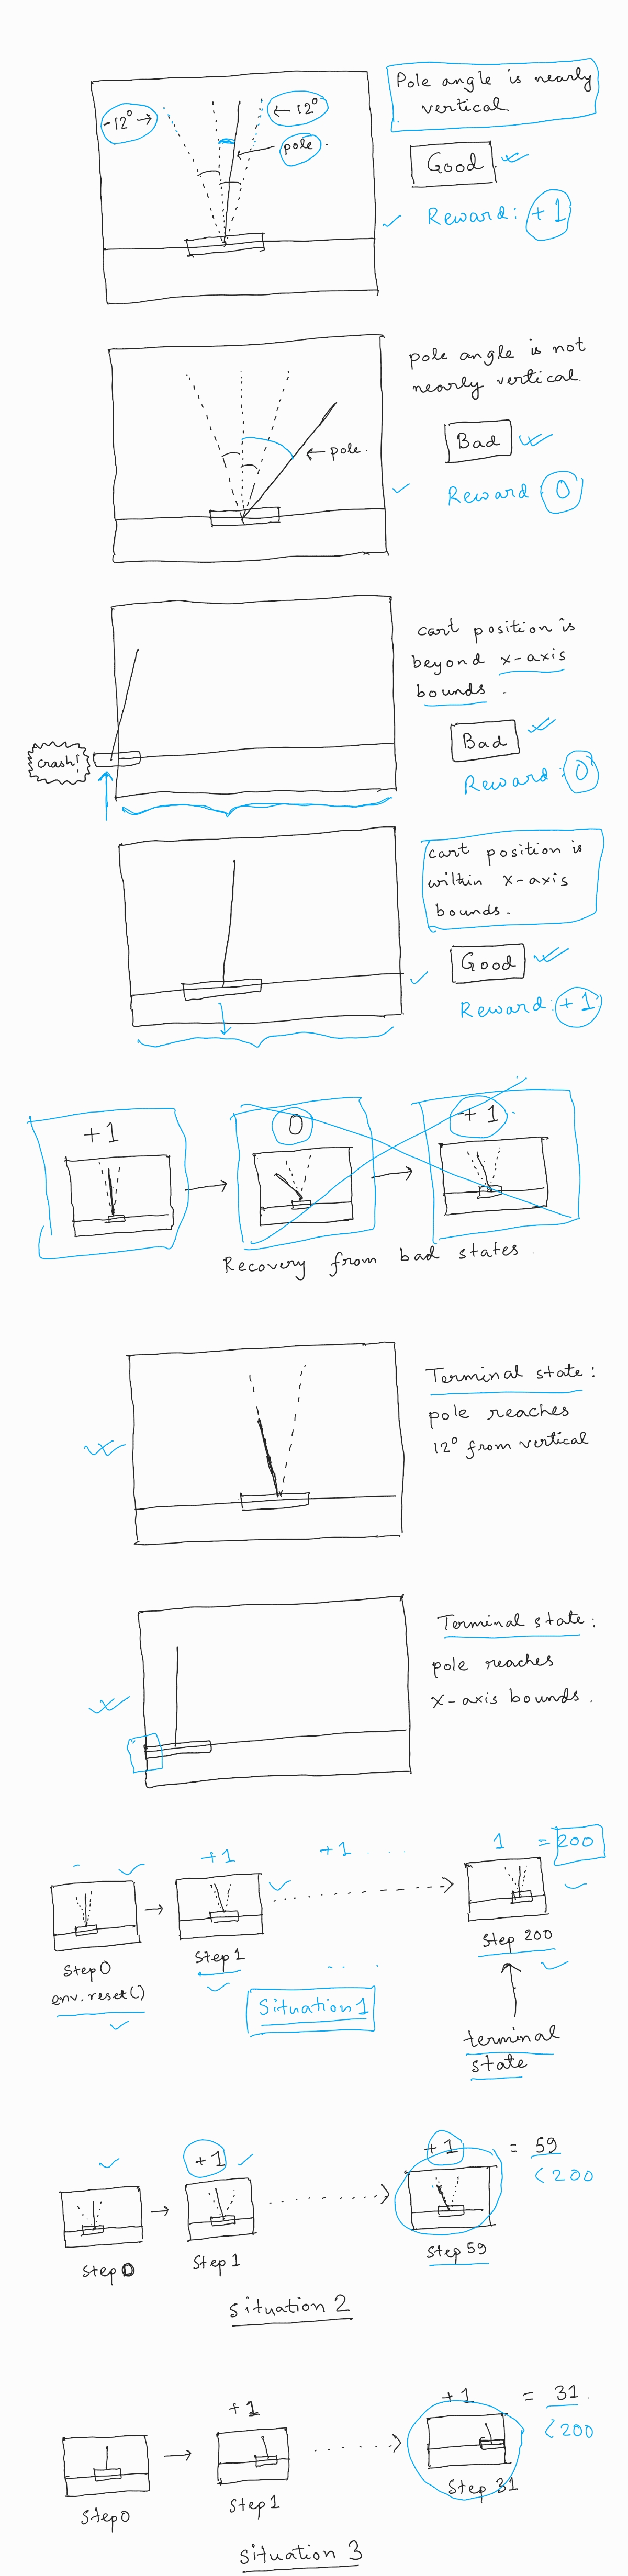 Pole angle is nearly
vertical.
-12° →
← 12°
pole.
Good
Reward: +1
pole angle is not
nearly vertical.
← pole.
Bad
Reward: 0
cart position is
beyond x-axis
bounds.
Bad
Reward: 0
crash!
cart position is
within x-axis
bounds.
Good
Reward: +1
+1
0
+1
Recovery from bad states.
Terminal state:
pole reaches
12° from vertical
Terminal state:
pole reaches
x-axis bounds.
- +1 +1 .... 1 = 200
Step 0
Step 1
Step 200
env.reset()
Situation 1
terminal
state
+1
+1
= 59
< 200
Step 0
Step 1
Step 59
situation 2
+1
+1
= 31.
< 200
Step 0
Step 1
Step 31
situation 3